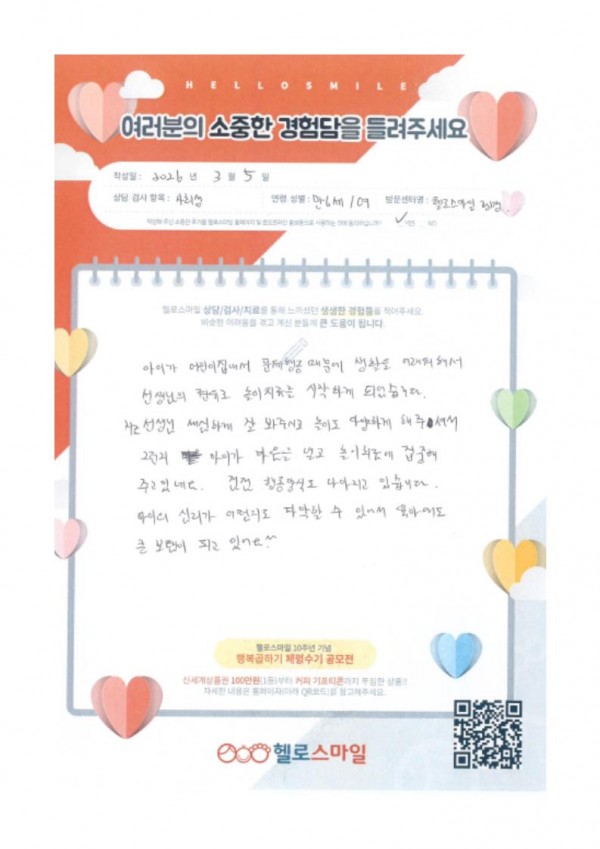 HELLOSMILE
여러분의 소중한 경험담을 들려주세요
작성일 : 2026 년 3 월 5 일
상담 검사 항목 : 연령 성별 : 만6세 / 여 방문센터명 : 헬로스마일
헬로스마일 상담/검사/치료를 통해 느끼셨던 생생한 경험들을 적어주세요.
비슷한 어려움을 겪고 계신 분들께 큰 도움이 됩니다.
아이가 어린이집에서 문제행동 때문에 생활을 어려워 해서
선생님의 권유로 놀이치료를 시작하게 되었습니다.
선생님 세심하게 잘 봐주시고 놀이도 다양하게 해주셔서
그런지 아이가 마음을 열고 놀이치료에 집중해
주고 있네요. 점점 행동양식도 나아지고 있습니다.
아이의 심리가 어떤지도 파악할 수 있어서 육아에도
큰 보탬이 되고 있어요^^
헬로스마일 10주년 기념
행복곱하기 체험수기 공모전
신세계상품권 100만원(1등)부터 커피 기프티콘까지 푸짐한 상품!!
자세한 내용은 홈페이지(아래 QR코드)를 참고해주세요.
헬로스마일